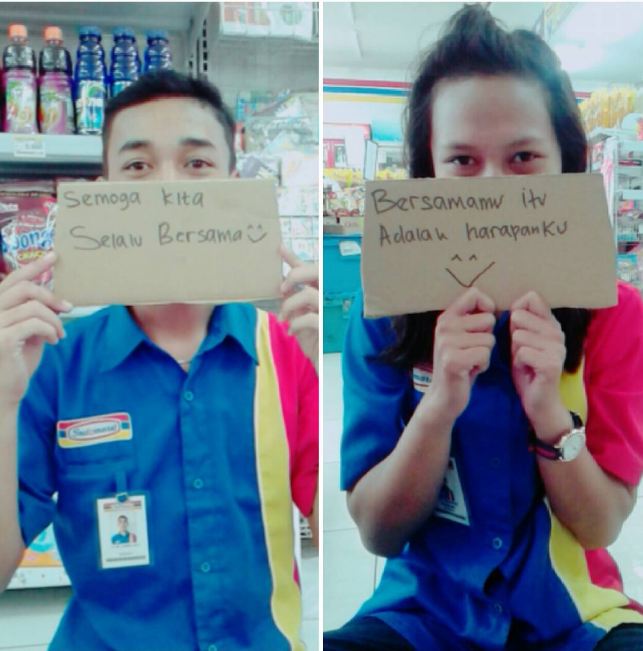 Semoga kita
Selalu Bersama
Bersamamu itu
Adalah harapanku
Indomaret